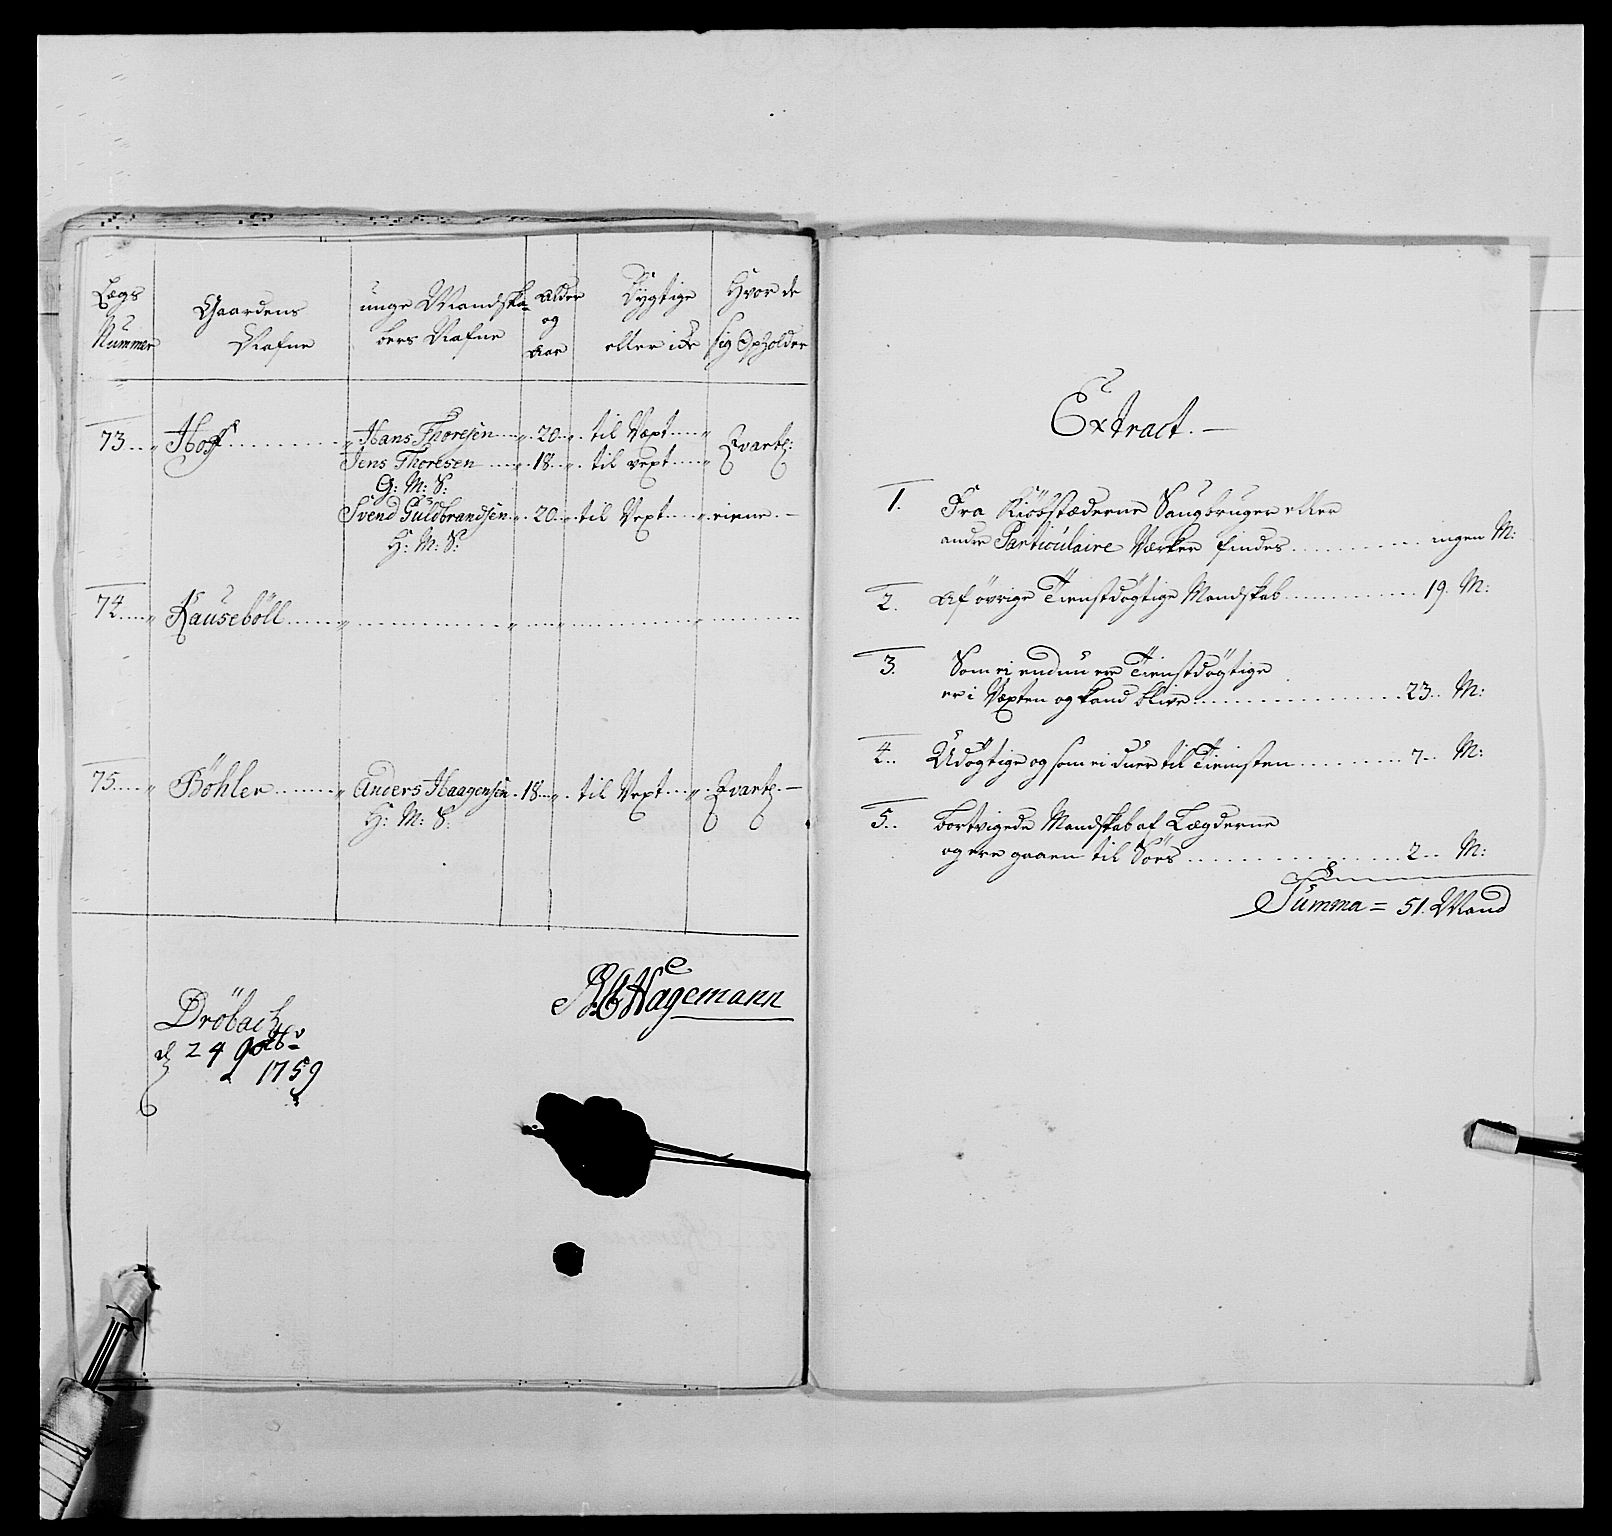 Lægs Nummer
Gaardens Nafne
unge Mandska-
bers Nafne
Alder og Aar
Dygtige
eller icke
Hvor de
sig Opholder
73 Hoff Hans Thoresen 20 til Vext Qvarte:
Jens Thoresen 18 til vext
G: M: S:
Svend Guldbrandsen 20 til Vext
H: M: S:
74 Kauseböll
75 Böhler Anders Haagensen 18 til Vext Qvarte
H: M: S:
Dröbach
d 24 9
1759
Hagemann
Extract.
1. Fra Kiöbstæderne Saugbruger eller
andre Particulaire Værker findes ingen M:
2. Af övrige Tienstdögtige Mandskab 19. M:
3. Som ei endnu ere Tienstdögtige
er i Vexten og kand blive 23 M:
4. Udögtige og som ei duer til Tienisten 7 M:
5. bortvigede Mandskab af Lægderne
og ere gaaen til Söes 2 M:
Summa = 51. Mand